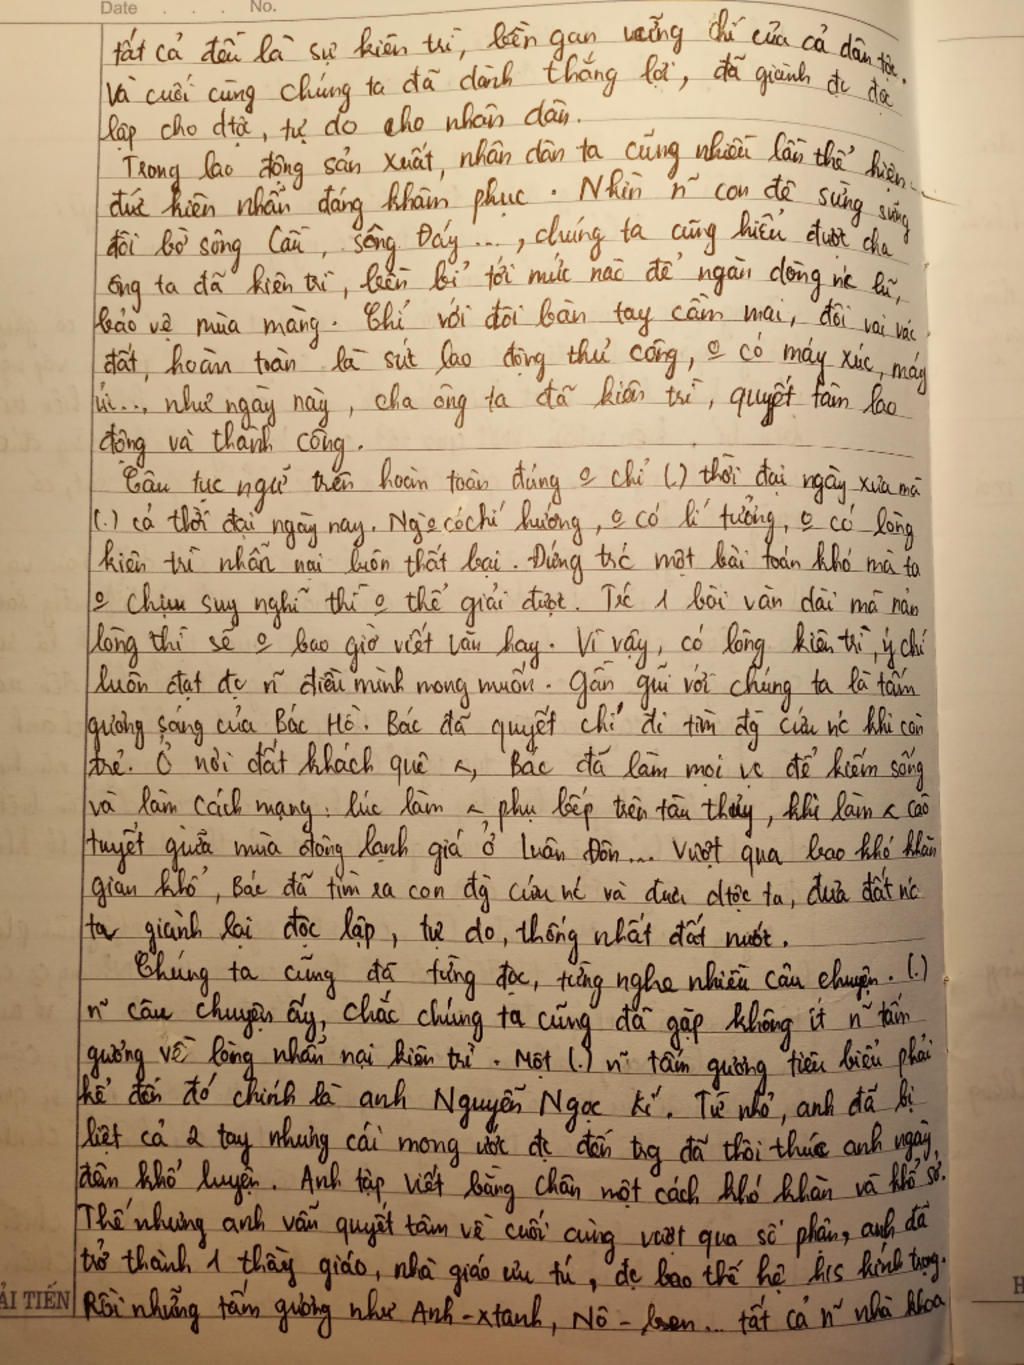 Date . . . No.
tất cả đều là sự kiên trì, bền gan vững chí của cả dân tộc.
Và cuối cùng chúng ta đã dành thắng lợi, đã giành đc độc
lập cho dtộc, tự do cho nhân dân.
Trong lao động sản xuất, nhân dân ta cũng nhiều lần thể hiện
đức kiên nhẫn đáng khâm phục. Nhìn n~ con đê sừng sững
đôi bờ sông Cầu, sông Đáy..., chúng ta cũng hiểu được cha
ông ta đã kiên trì, bền bỉ tới mức nào để ngăn dòng nc lũ,
bảo vệ mùa màng. Chỉ với đôi bàn tay cầm mai, đôi vai vác
đất, hoàn toàn là sức lao động thủ công, o có máy xúc, máy
ủi... như ngày này, cha ông ta đã kiên trì, quyết tâm lao
động và thành công.
Câu tục ngữ trên hoàn toàn đúng o chỉ (.) thời đại ngày xưa mà
(.) cả thời đại ngày nay. Ng o có chí hướng, o có lí tưởng, o có lòng
kiên trì nhẫn nại luôn thất bại. Đứng trc một bài toán khó mà ta
o chịu suy nghĩ thì o thể giải được. Trc 1 bài văn dài mà nản
lòng thì sẽ o bao giờ viết văn hay. Vì vậy, có lòng kiên trì, ý chí
luôn đạt đc n~ điều mình mong muốn. Gần gũi với chúng ta là tấm
gương sáng của Bác Hồ. Bác đã quyết chí đi tìm đg cứu nc khi còn
trẻ. Ở nơi đất khách quê <, Bác đã làm mọi vc để kiếm sống
và làm cách mạng: lúc làm < phụ bếp trên tàu thủy, khi làm < cào
tuyết giữa mùa đông lạnh giá ở Luân Đôn... Vượt qua bao khó khăn
gian khổ, Bác đã tìm ra con đg cứu nc và đưa dtộc ta, đưa đất nc
ta giành lại độc lập, tự do, thống nhất đất nước.
Chúng ta cũng đã từng đọc, từng nghe nhiều câu chuyện. (.)
n~ câu chuyện ấy, chắc chúng ta cũng đã gặp không ít n~ tấm
gương về lòng nhẫn nại kiên trì. Một (.) n~ tấm gương tiêu biểu phải
kể đến đó chính là anh Nguyễn Ngọc Kí. Từ nhỏ, anh đã bị
liệt cả 2 tay nhưng cái mong ước đc đến trg đã thôi thúc anh ngày
đêm khổ luyện. Anh tập viết bằng chân một cách khó khăn và khổ sở.
Thế nhưng anh vẫn quyết tâm về cuối cùng vượt qua số phận, anh đã
trở thành 1 thầy giáo, nhà giáo ưu tú, đc bao thế hệ hs kính trọng.
Rồi những tấm gương như Anh-xtanh, Nô-ben... tất cả n~ nhà khoa
ẢI TIẾN
H